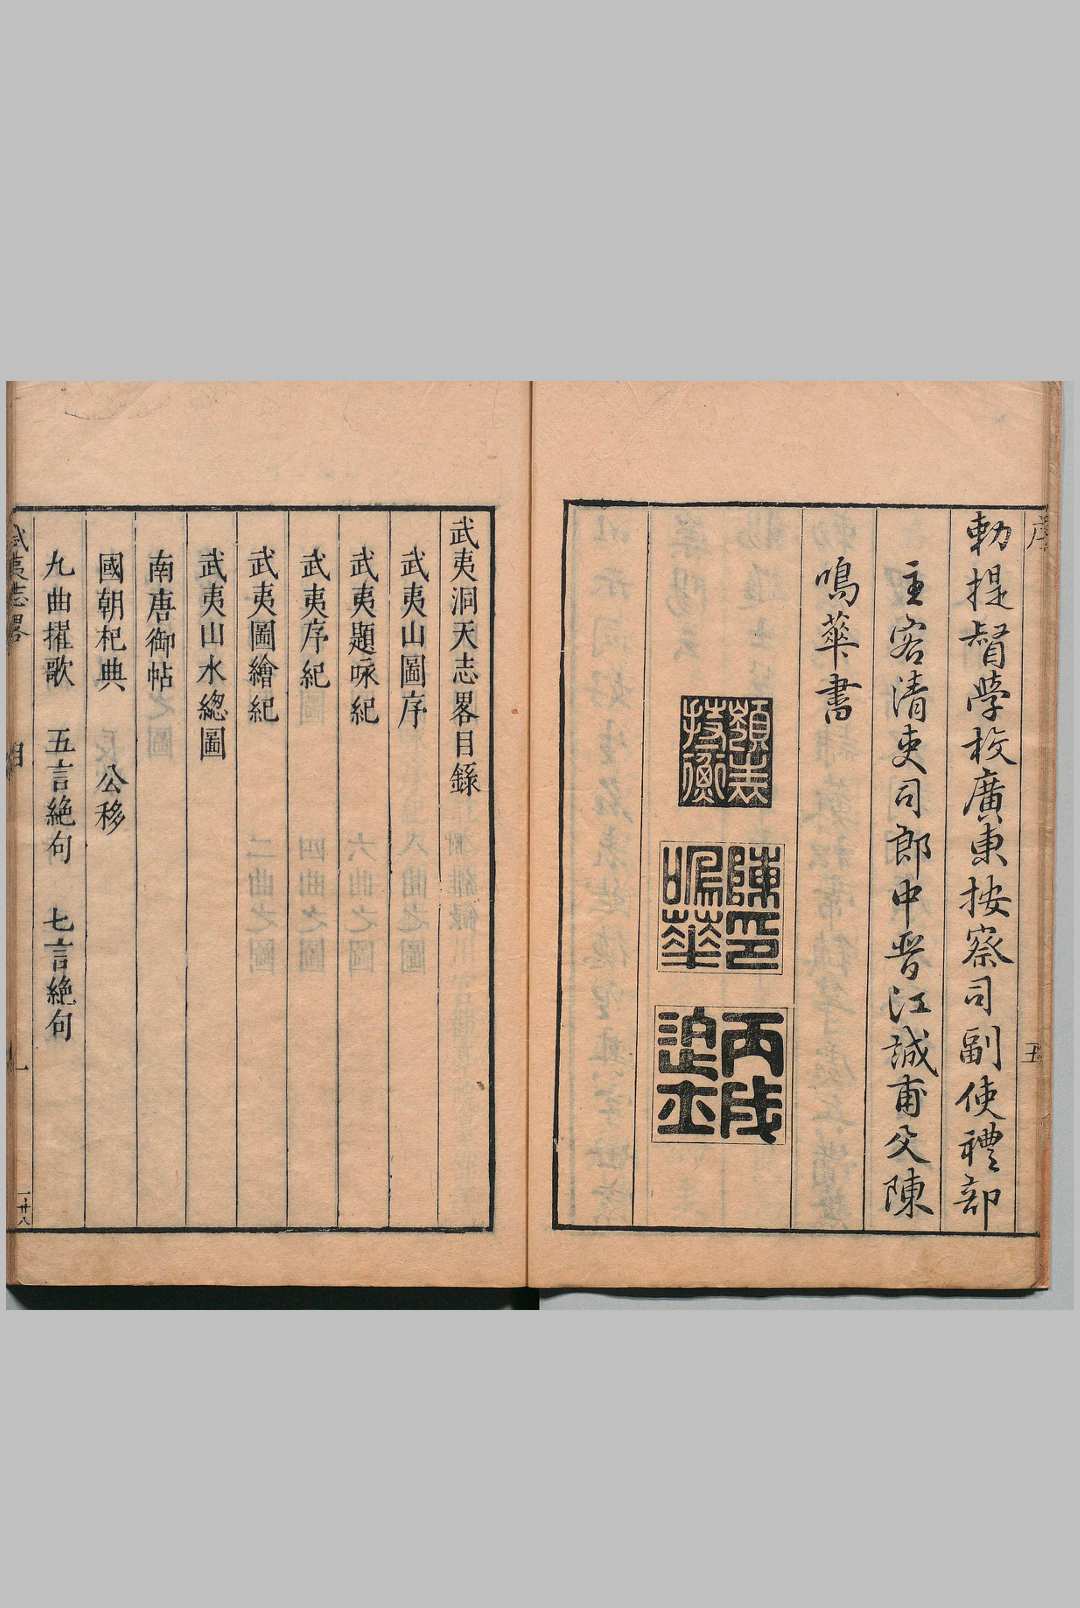 序
五
勅提督學校廣東按察司副使禮部
主客清吏司郎中晋江誠甫父陳
鳴華書
嶺表
技衡
陳印
鳴華
丙戌
進士
武夷洞天志畧目錄
武夷山圖序
武夷題咏紀
武夷序紀
武夷圖繪紀
武夷山水總圖
南唐御帖
國朝杞典 公移
九曲擢歌 五言絶句 七言絶句
武夷志畧
目
一